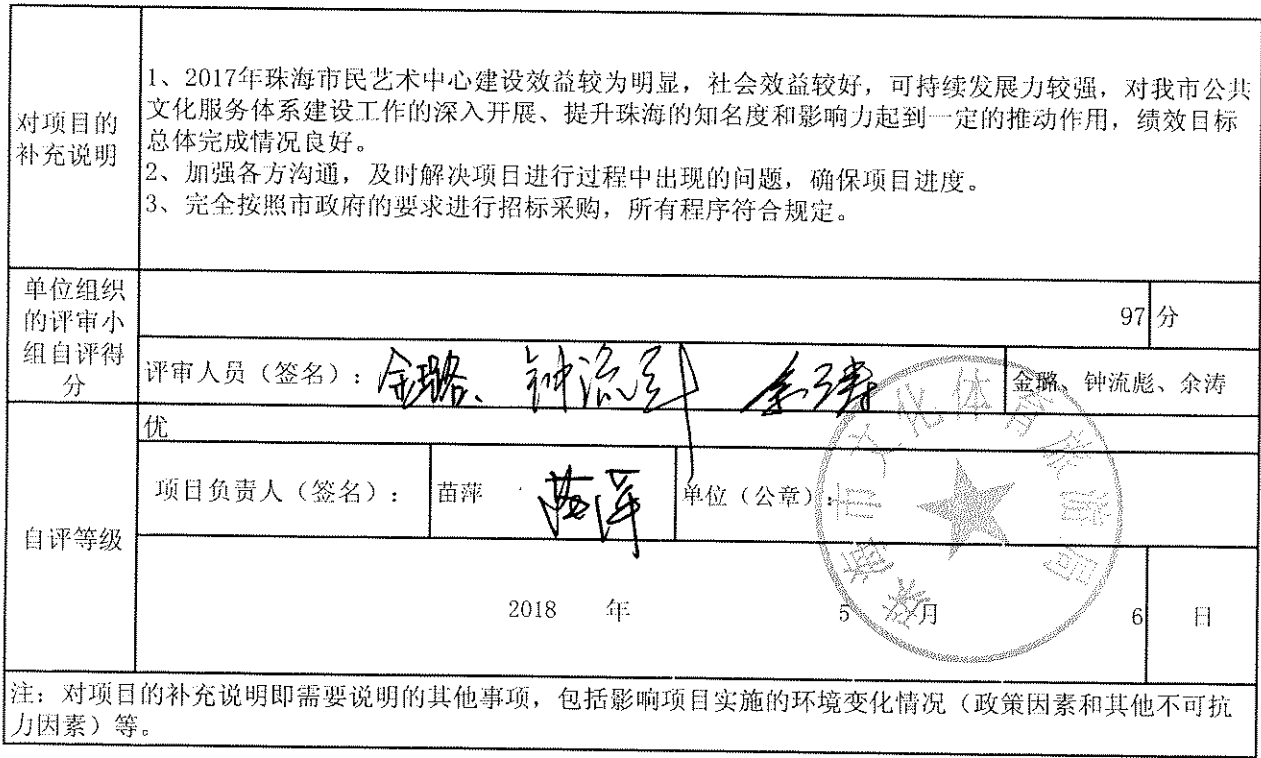 对项目的
补充说明
1、2017年珠海市民艺术中心建设效益较为明显，社会效益较好，可持续发展力较强，对我市公共
文化服务体系建设工作的深入开展、提升珠海的知名度和影响力起到一定的推动作用，绩效目标
总体完成情况良好。
2、加强各方沟通，及时解决项目进行过程中出现的问题，确保项目进度。
3、完全按照市政府的要求进行招标采购，所有程序符合规定。
单位组织
的评审小
组自评得
分
97 分
评审人员（签名）： 金璐、 钟流彪 余涛 金璐、钟流彪、余涛
自评等级
优
项目负责人（签名）： 苗萍 苗萍 单位（公章）：
珠海市文化体育旅游局
2018 年 5 月 6 日
注：对项目的补充说明即需要说明的其他事项，包括影响项目实施的环境变化情况（政策因素和其他不可抗
力因素）等。